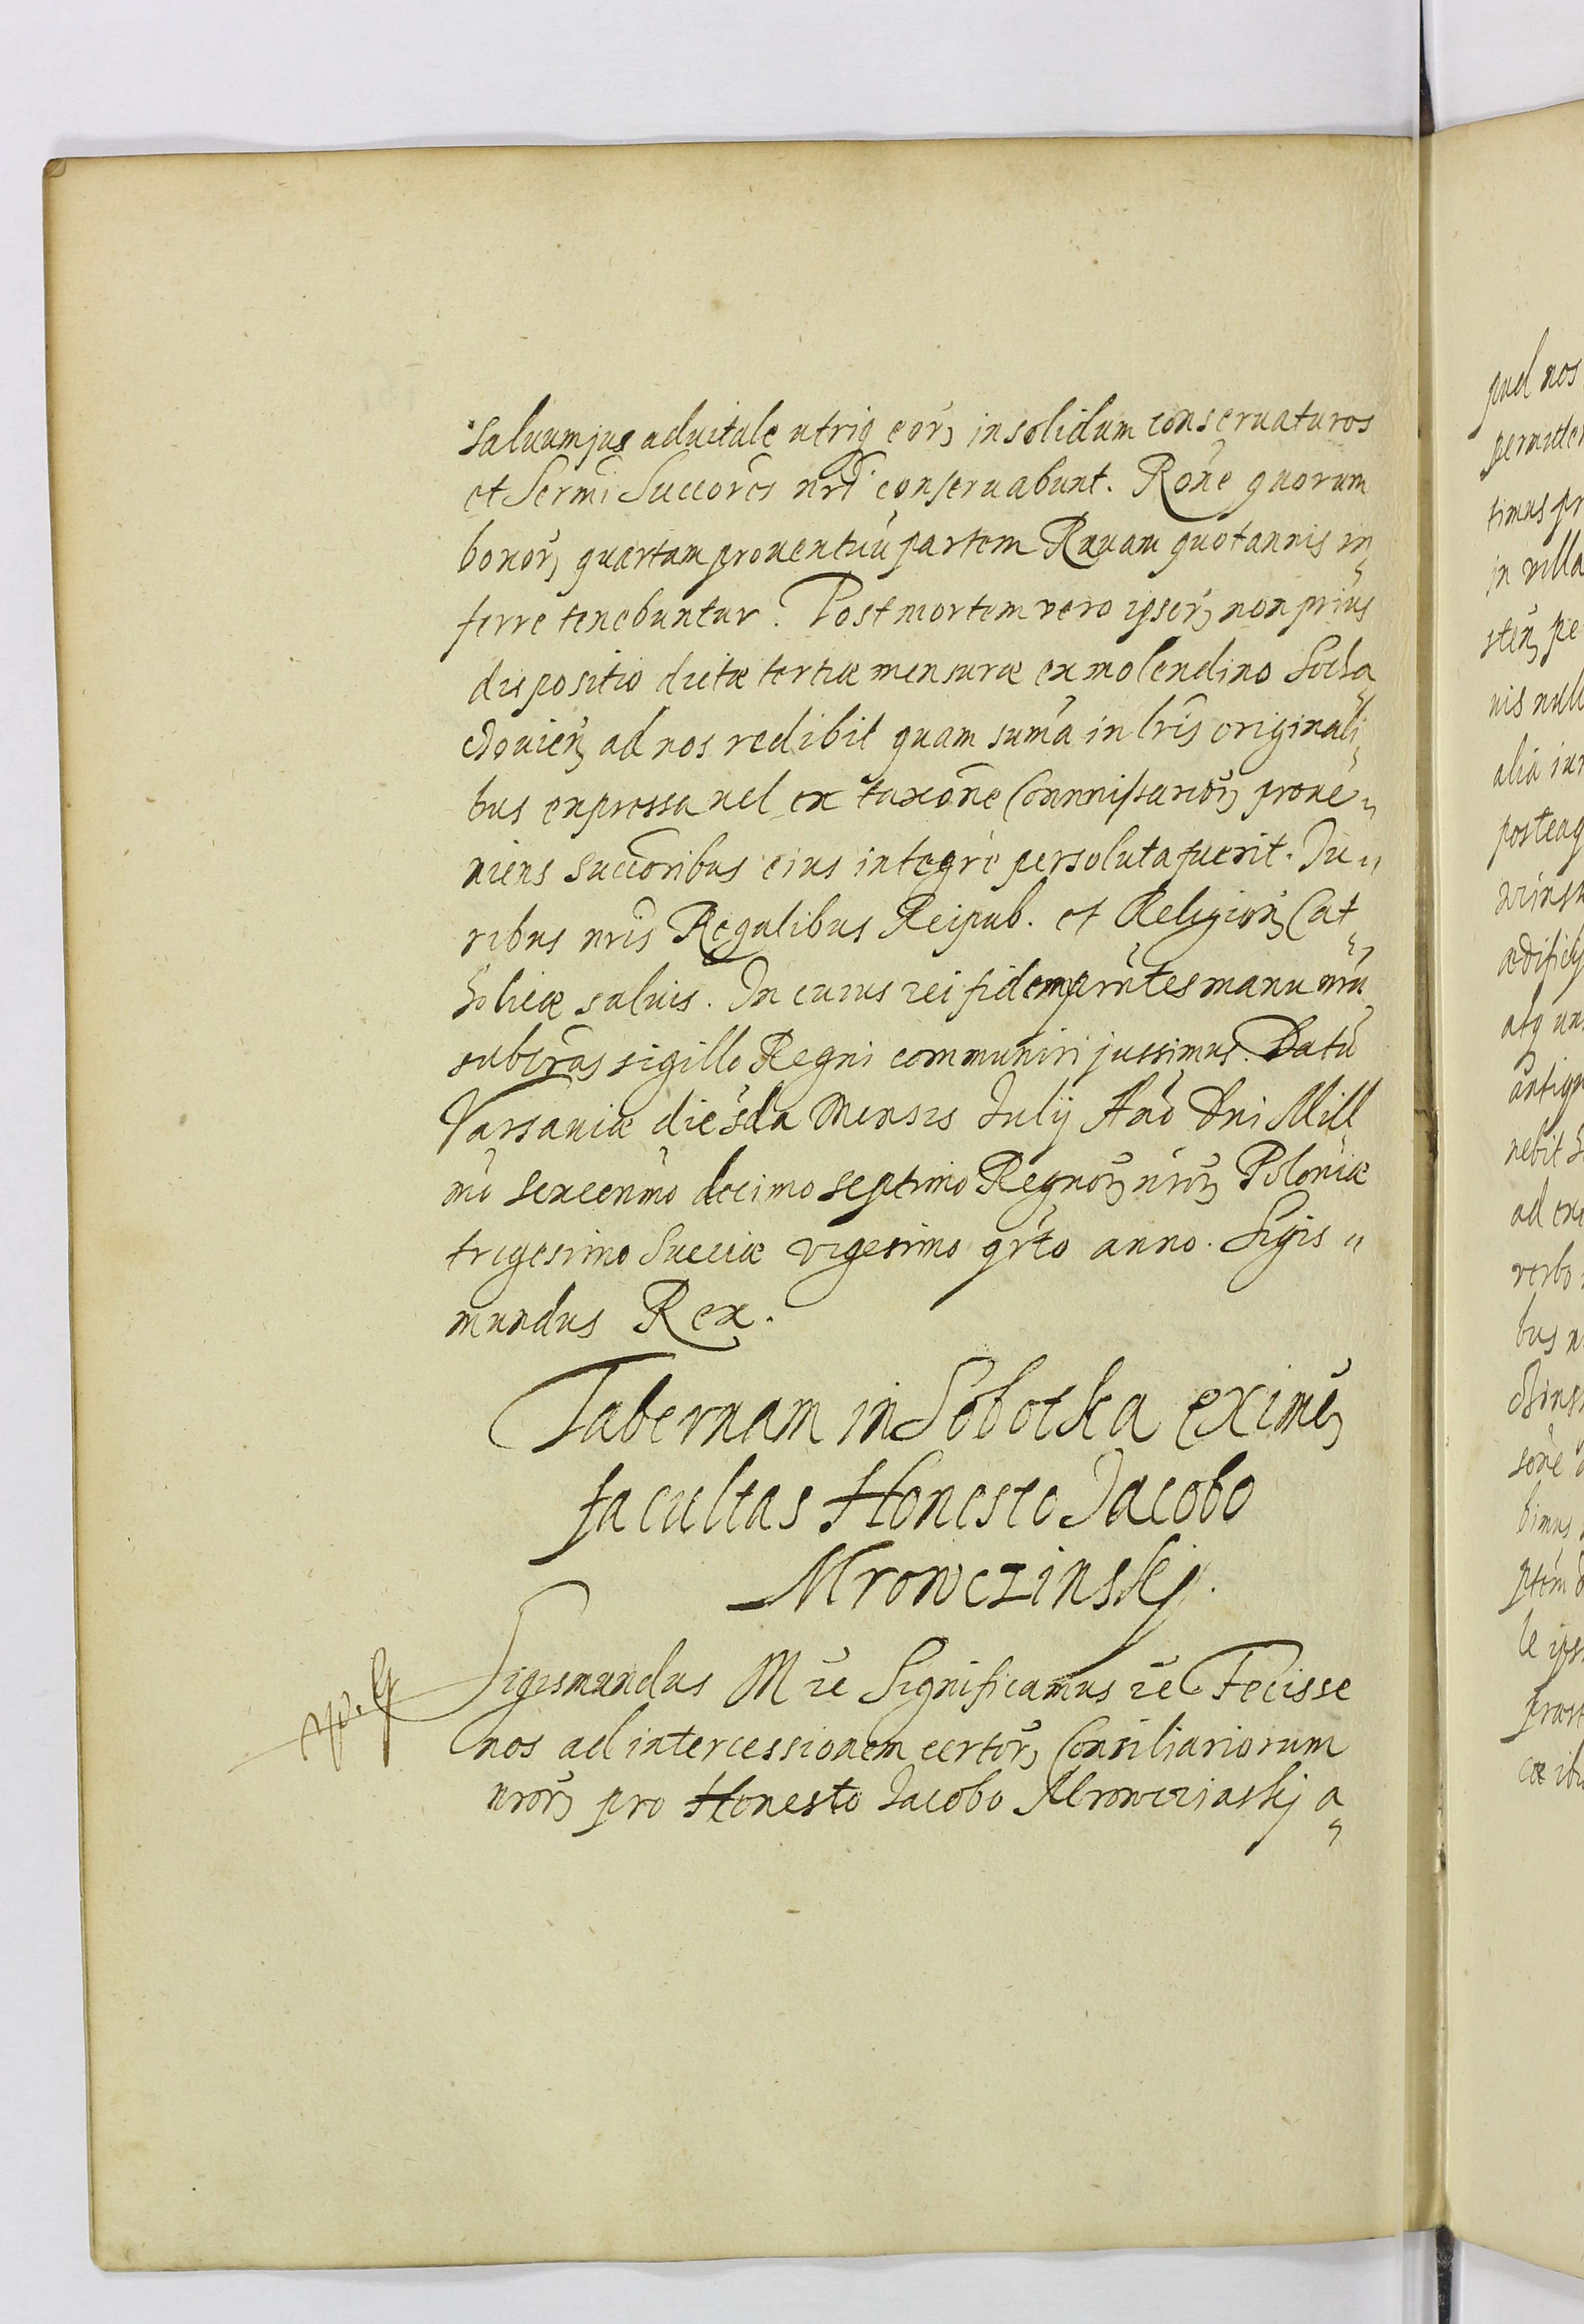 saluum jus aduitale utriq eorꝫ in solidum conseruaturos
et Sermi Succores nri conseruabunt. Rone quorum
bonorꝫ quartam prouentuū partem Rauam quotannis in
ferre tenebuntur. Post mortem vero ipsorꝫ non prius
dispositio dictæ tertiæ mensuræ ex molendino Socha
czouienꝫ ad nos redibit quam suma in lris originali
bus expressa uel ex taxōne Commissariorꝫ proue„
niens succoribus eius integrè persoluta fuerit. Ju„
ribus nris Regalibus Reipub. et Religionꝫ Cat
holicæ saluis. In cuius rei fidem prntes manu nra
subscras sigillo Regni communiri jussimus. Datū
Varsauiæ die 2da Mensis Julij Anō Dni Mill
mo sexcenmo decimo septimo Regnorꝫ nrorꝫ Poloniæ
trigesimo Sueciæ vigesimo qrto anno. Sigis„
mundus Rex.
Tabernam in Sobotka eximēꝫ
facultas Honesto Jacobo
Mrowczinskj.
Sigismundus M ie Significamus ie Fecisse
nos ad intercessionem certorꝫ Consiliariorum
nrorꝫ pro Honesto Jacobo Mrowczinskj a
pud nos
permitte
timus pr
in villa
stenꝫ pe
uis null
alia iur
posteaq
ædificij
atq
antiqu
nebit
ad ex
verbo
bus n
sone
bimus
le ips